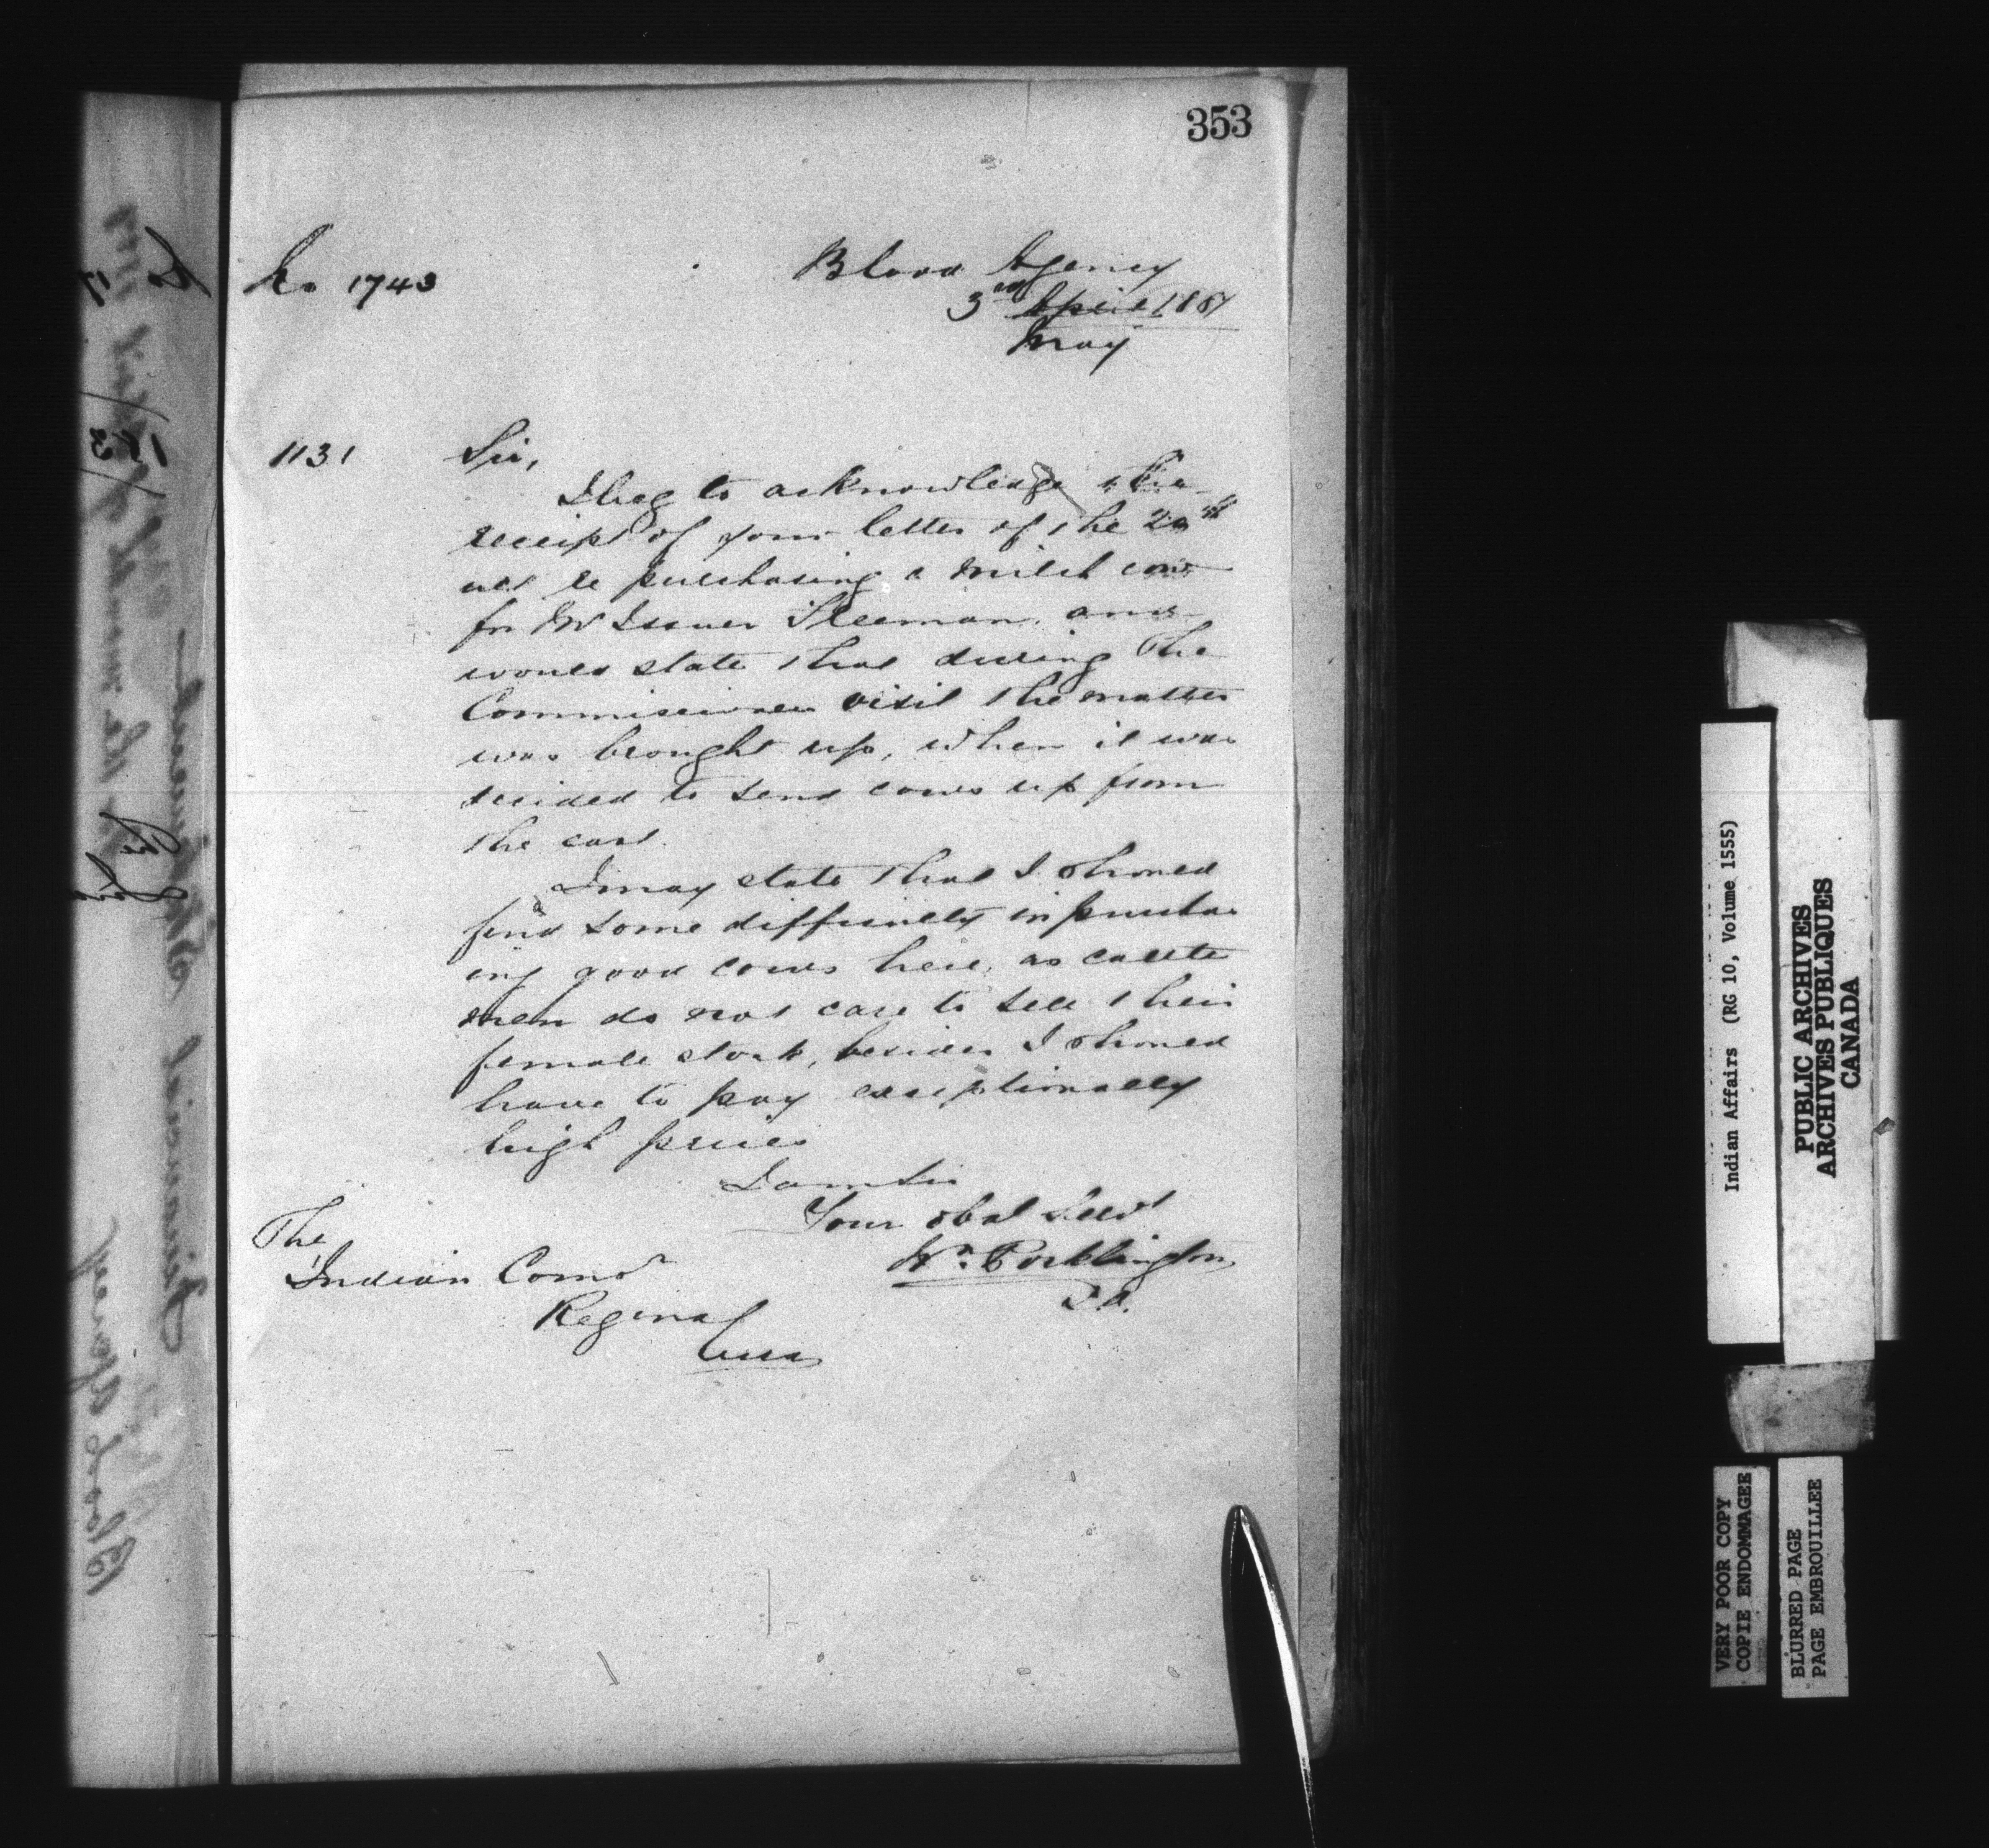 353
No 1743
Blood Agency
3rd April 1887
May
1131
Sir,
I beg to acknowledge the
receipt of your letter of the 20th
ult re purchasing a milch cow
for Mr Issuer Sleeman, and
would state that during the
Commissioners visit the matter
was brought up, when it was
decided to send cows up from
the east.
I may state that I should
find some difficulty in purchas
ing good cows here, as cattle
men do not care to sell their
female stock, besides I should
have to pay exceptionally
high prices
I am Sir
Your obdt Servt
Wm. Pocklington
I.A.
The
Indian Comr
Regina
Assa
Indian Affairs (RG 10, Volume 1555)
PUBLIC ARCHIVES
ARCHIVES PUBLIQUES
CANADA
VERY POOR COPY
COPIE ENDOMMAGEE
BLURRED PAGE
PAGE EMBROUILLEE